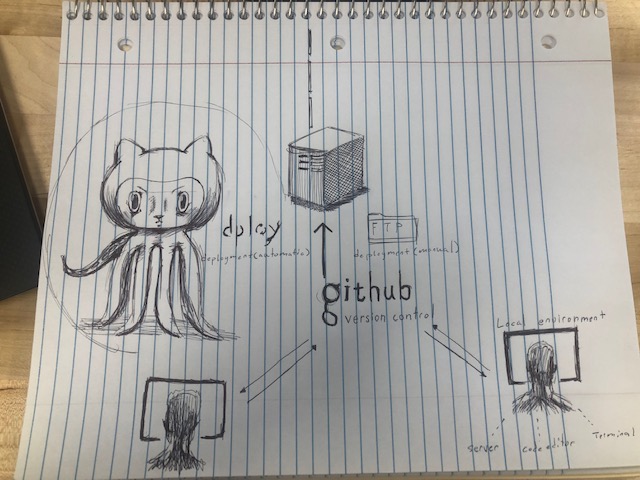 dploy
deployment(automatic)
FTP
deployment(manual)
github
version control
Local environment
server
code editor
Terminal